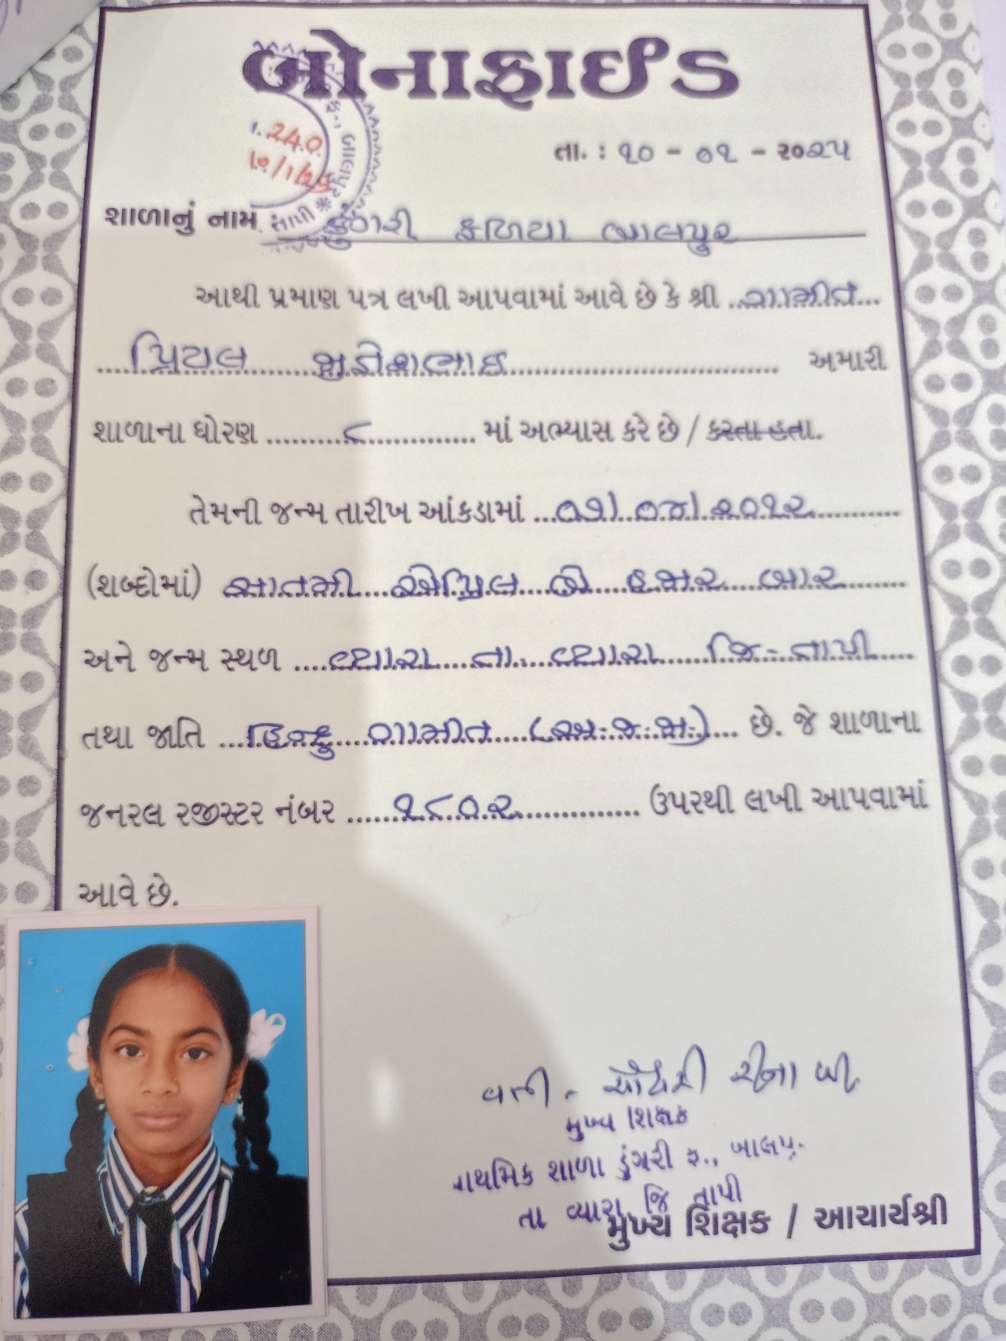 બોનાફાઈડ
૧. 240
10/1/25
તા. : ૧૦ - ૦૧ - ૨૦૨૫
શાળાનું નામ ડુંગરી ફળિયા બાલપુર
આથી પ્રમાણ પત્ર લખી આપવામાં આવે છે કે શ્રી ગામીત
પ્રિયલ મુકેશભાઇ અમારી
શાળાના ધોરણ ૮ માં અભ્યાસ કરે છે / કરતા હતા.
તેમની જન્મ તારીખ આંકડામાં ૦૭/૦૪/૨૦૧૨
(શબ્દોમાં) સાતમી એપ્રિલ બે હજાર બાર
અને જન્મ સ્થળ વ્યારા તા. વ્યારા જિ - તાપી
તથા જાતિ હિન્દુ ગામીત (અ.જ.જા.) છે. જે શાળાના
જનરલ રજીસ્ટર નંબર ૧૮૦૨ ઉપરથી લખી આપવામાં
આવે છે.
વતી - ચૌધરી રીના બી.
મુખ્ય શિક્ષક
પ્રાથમિક શાળા ડુંગરી ફ., બાલપુર
તા વ્યારા જિ તાપી
મુખ્ય શિક્ષક / આચાર્યશ્રી